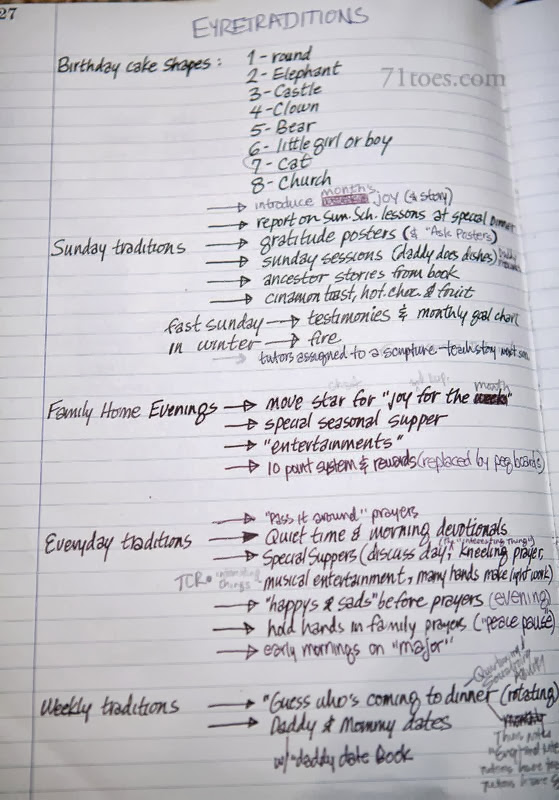 27
EYRETRADITIONS
71toes.com
Birthday cake shapes : 1 - round
2 - Elephant
3 - Castle
4 - Clown
5 - Bear
6 - little girl or boy
7 - Cat
8 - Church
→ introduce month's joy (& story)
→ report on Sun. Sch. lessons at special dinner
Sunday traditions → gratitude posters (& "Ask Posters)
→ sunday sessions (daddy does dishes)
→ ancestor stories from book
→ cinamon toast, hot choc. & fruit
fast sunday → testimonies & monthly goal chart
in winter → fire
→ tutors assigned to a scripture - teach story next sun
month
Family Home Evenings → move star for "joy for the week"
→ special seasonal supper
→ "entertainments"
→ 10 point system & rewards (replaced by peg boards)
→ "Pass it around" prayers
→ Quiet time & morning devotionals
Everyday traditions → Special Suppers (discuss day, "Interesting Thing") kneeling prayer,
TCR • interesting things musical entertainment, many hands make light work)
→ "happys & sads" before prayers (evening)
→ hold hands in family prayers ("peace pause)
→ early mornings on "major"
Weekly traditions → "Guess who's coming to dinner (rotating)
→ Daddy & Mommy dates
w/ daddy date Book